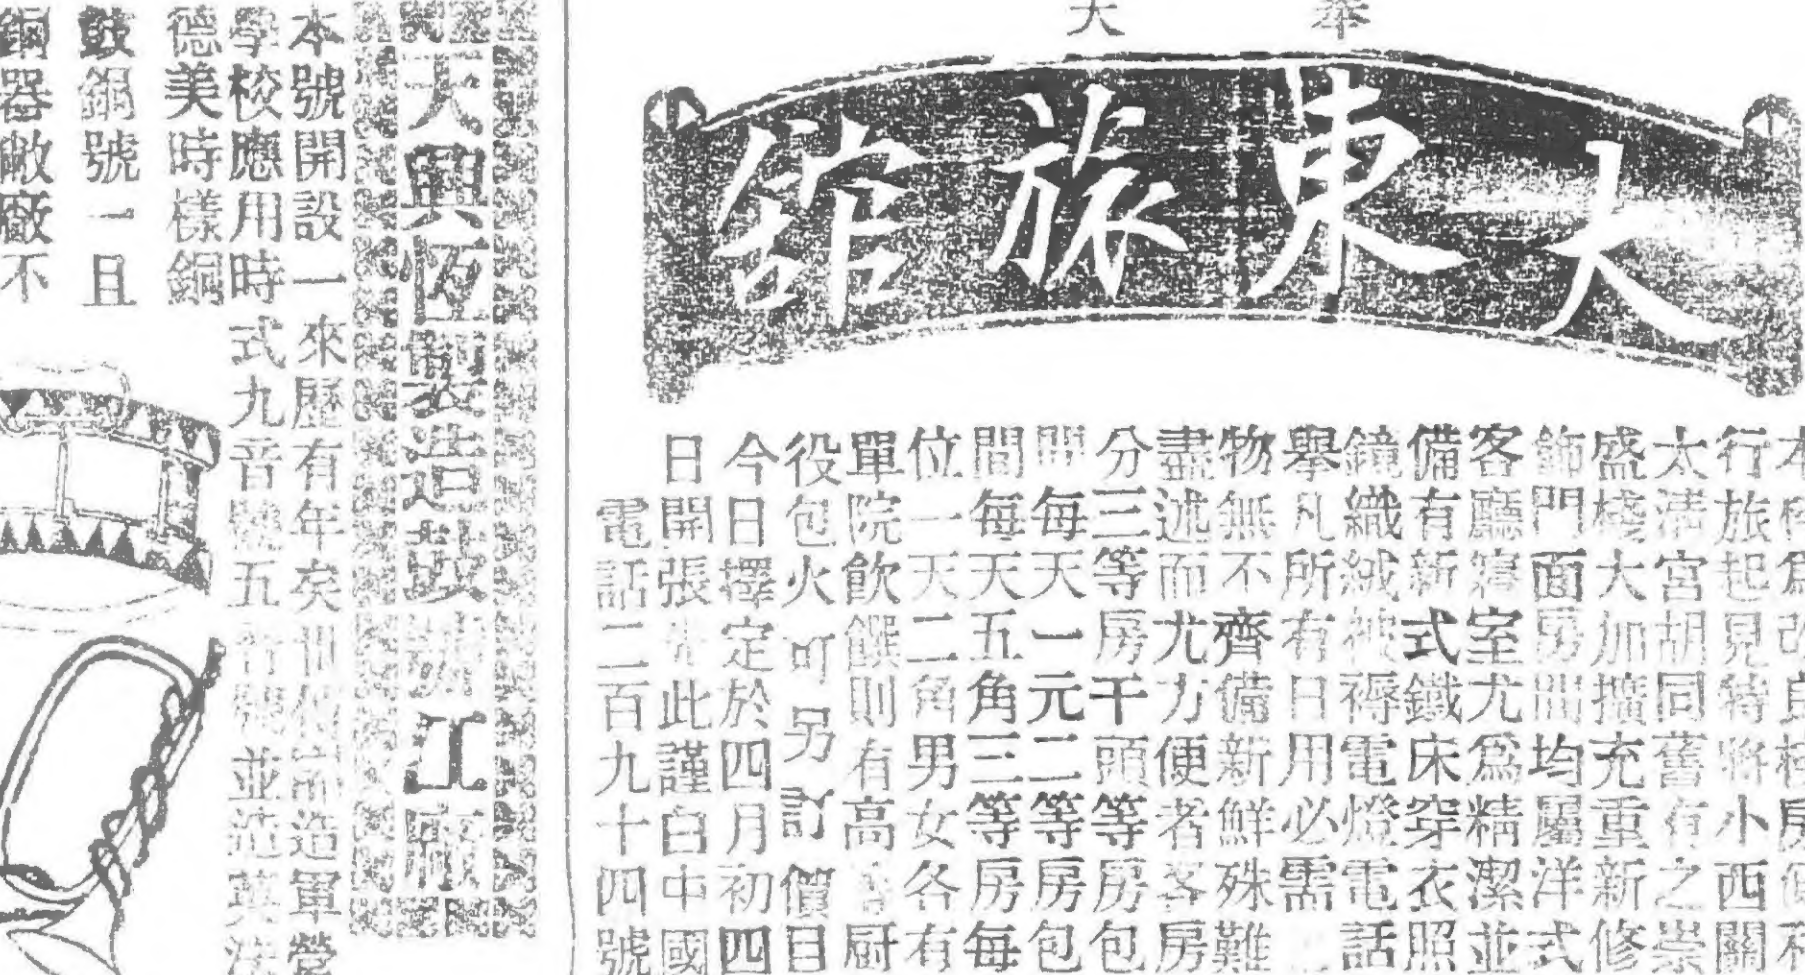 大東旅館
行旅起見特將小西關
太清宮胡同舊有之崇
盛棧大加擴充重新修
飾門面房間均屬洋式
客廳寫室尤為精潔並
備有新式鐵床穿衣照
鏡織絨被褥電燈電話
舉凡所有日用必需
物無不齊備新鮮殊難
盡述而尤方便者客房
分三等房干頭等房包
間每天一元二等房包
間每天五角三等房每
位一天二角男女各有
單院飲饌則有高等厨
役包火可另訂價目
今日擇定於四月初四
日開張此謹白中國
電話二百九十四號
天興恆製造鼓號工廠
本號開設一來歷有年矣造軍營
學校應用時式九音號五並造英法
德美時樣銅
鼓銅號一且
銅器敝廠不